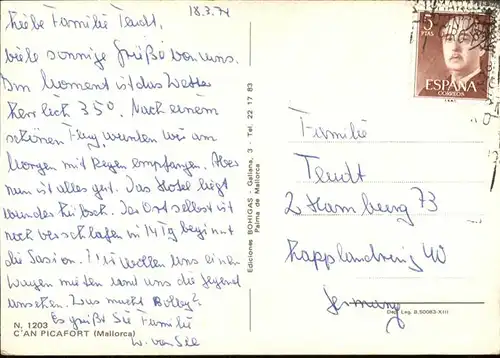 18.3.74
Liebe Familie Tendt,
viele sonnige Grüße von uns.
Im Moment ist das Wetter
herrlich 35°. Nach einem
schönen Flug, wurden wir am
Morgen mit Regen empfangen. Aber
nun ist alles gut. Das Hotel liegt
wunder hübsch. Der Ort selbst ist
noch verschlafen in 14 Tg beginnt
die Saison. Wir wollen uns einen
Wagen mieten und uns die Gegend
ansehen. Was macht Bolby?
Es grüßt Sie Familie
W. van
N. 1203
C'AN PICAFORT (Mallorca)
Ediciones BOHIGAS - Gallana, 3 - Tel. 22 17 83
Palma de Mallorca
5
PTAS
ESPAÑA
CORREOS
Familie
Tendt
2 Hamburg 73
Kapplandring 40
Germany
Dep. Leg. B. 50083-XIII